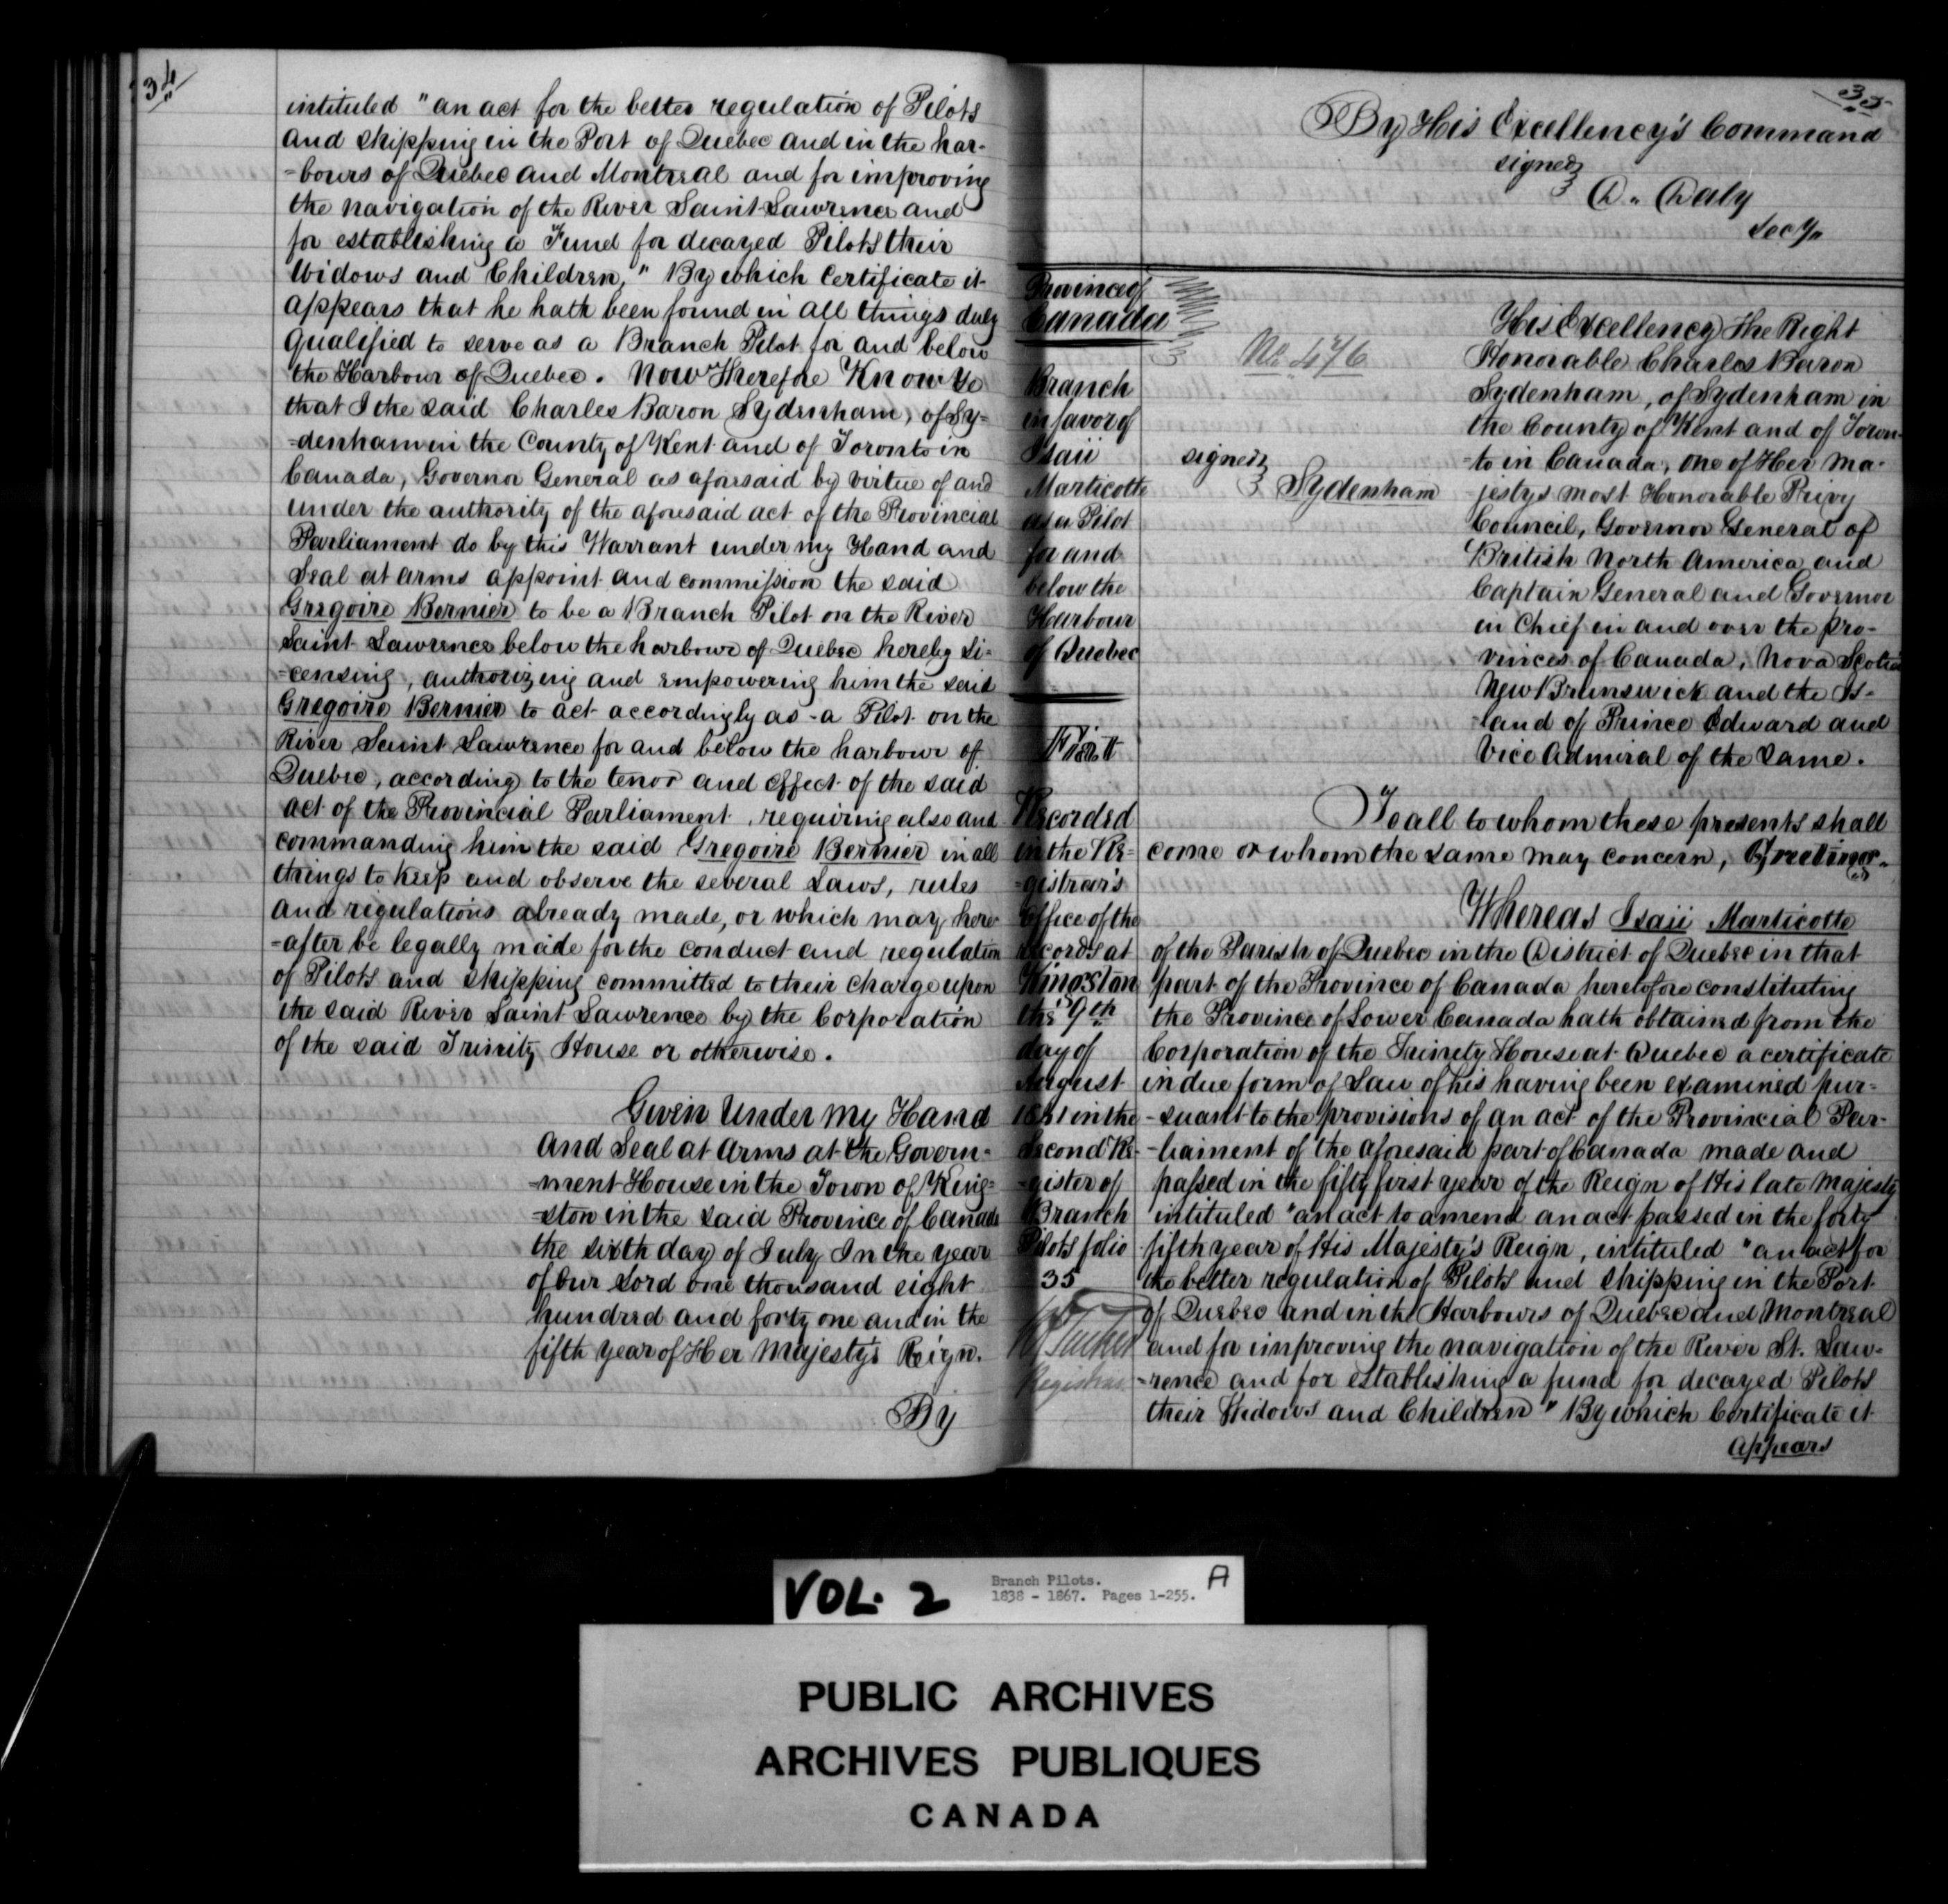 34
intituled "an act for the better regulation of Pilots
and shipping in the Port of Quebec and in the har-
=bours of Quebec and Montreal and for improving
the navigation of the River Saint Lawrence and
for establishing a Fund for decayed Pilots their
Widows and Children," By which Certificate it
appears that he hath been found in all things duly
qualified to serve as a Branch Pilot for and below
the Harbour of Quebec. Now Therefore Know Ye
that I the said Charles Baron Sydenham, of Sy=
=denham in the County of Kent and of Toronto in
Canada, Governor General as aforesaid by virtue of and
under the authority of the aforesaid act of the Provincial
Parliament do by this Warrant under my Hand and
Seal at arms appoint and commission the said
Gregoire Bernier to be a Branch Pilot on the River
Saint Lawrence below the harbour of Quebec hereby li=
=censing, authorizing and empowering him the said
Gregoire Bernier to act accordingly as a Pilot on the
River Saint Lawrence for and below the harbour of
Quebec, according to the tenor and effect of the said
act of the Provincial Parliament, requiring also and
commanding him the said Gregoire Bernier in all
things to keep and observe the several Laws, rules
and regulations already made, or which may here
=after be legally made for the conduct and regulation
of Pilots and shipping committed to their charge upon
the said River Saint Lawrence by the Corporation
of the said Trinity House or otherwise.
Given Under My Hand
and Seal at Arms at the Govern=
=ment House in the Town of King=
=ston in the said Province of Canada
the sixth day of July In the year
of Our Lord one thousand eight
hundred and forty one and in the
fifth year of Her Majesty's Reign.
By
35
By His Excellency's Command
signed
D. Daly
Secy.
Province of
Canada
No 476
Branch
in favor of
Isaii
Marticotte
as a Pilot
for and
below the
Harbour
of Quebec
Fiat
Recorded
in the Re=
=gistrar's
Office of the
records at
Kingston
the 9th
day of
August
1841 in the
Second Re-
=gister of
Branch
Pilots folio
35
Registrar
signed
Sydenham
His Excellency The Right
Honorable Charles Baron
Sydenham, of Sydenham in
the County of Kent and of Toron
=to in Canada, one of Her Ma-
jestys most Honorable Privy
Council, Governor General of
British North America and
Captain General and Governor
in Chief in and over the Pro-
vinces of Canada, Nova Scotia
New Brunswick and the Is-
-land of Prince Edward and
Vice Admiral of the same.
To all to whom these presents shall
come or whom the same may concern, Greeting.
Whereas Isaii Marticotte
of the Parish of Quebec in the District of Quebec in that
part of the Province of Canada heretofore constituting
the Province of Lower Canada hath obtained from the
Corporation of the Trinety House at Quebec a certificate
in due form of Law of his having been examined pur=
-suant to the provisions of an act of the Provincial Par-
-liament of the aforesaid part of Canada made and
passed in the fifty first year of the Reign of His late Majesty
intituled "an act to amend an act passed in the forty
fifth year of His Majesty's Reign, intituled "an act for
the better regulation of Pilots and shipping in the Port
of Quebec and in the Harbours of Quebec and Montreal
and for improving the navigation of the River St. Law=
=rence and for establishing a fund for decayed Pilots
their Widows and Children" By which Certificate it
appears
VOL. 2
Branch Pilots.
1838 - 1867. Pages 1-255.
A
PUBLIC ARCHIVES
ARCHIVES PUBLIQUES
CANADA